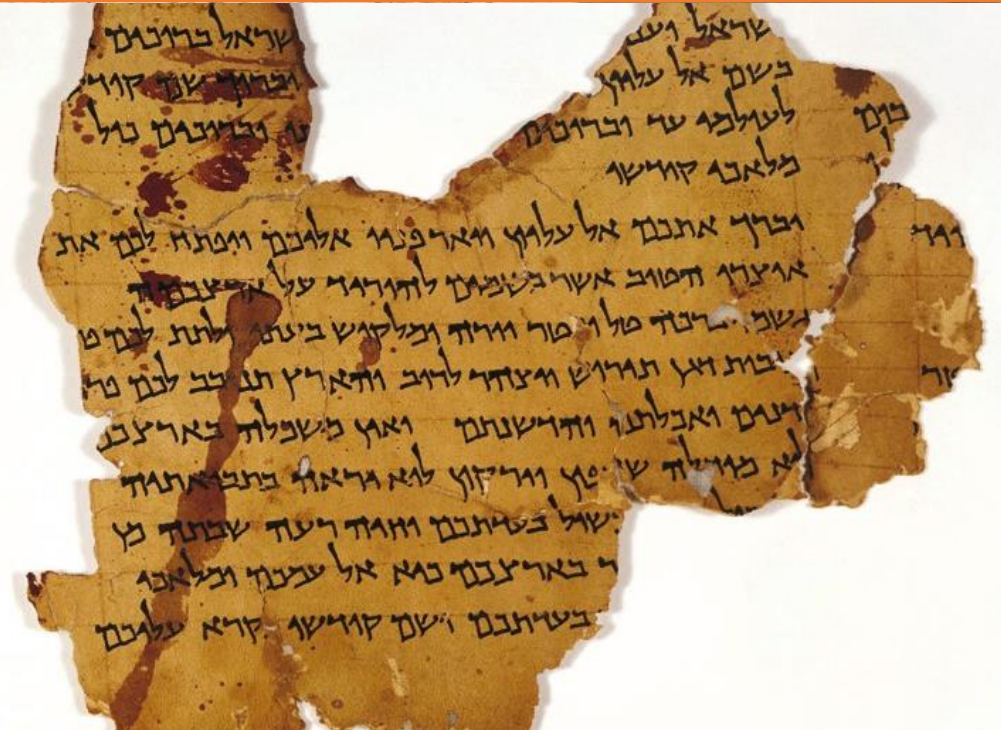 שראל וענ שראל ברוכים
בשם אל עליון וברוך שם קודש
לעולמי עד וברוכים תו וברוכים כול
מלאכי קודשו
יברך אתכם אל עליון ויאר פניו אליכם ויפתח לכם את
אוצרו הטוב אשר בשמים להוריד על ארצכמה
גשמי ברכה טל ומטר יורה ומלקוש בעתו ולתת לכם
דגן תירוש ויצהר לרוב והארץ תנובב לכם פר
דנים ואכלתם והדשנתם ואין משכלה בארצכם
לא מוחלה שדפון וירקון לוא יראה בתבואתיה
ישול בעדתכם וחיה רעה שבתה מן
ר בארצכם כיא אל עמכם ומלאכי
בעדתכם ושם קודשו נקרא עליכם